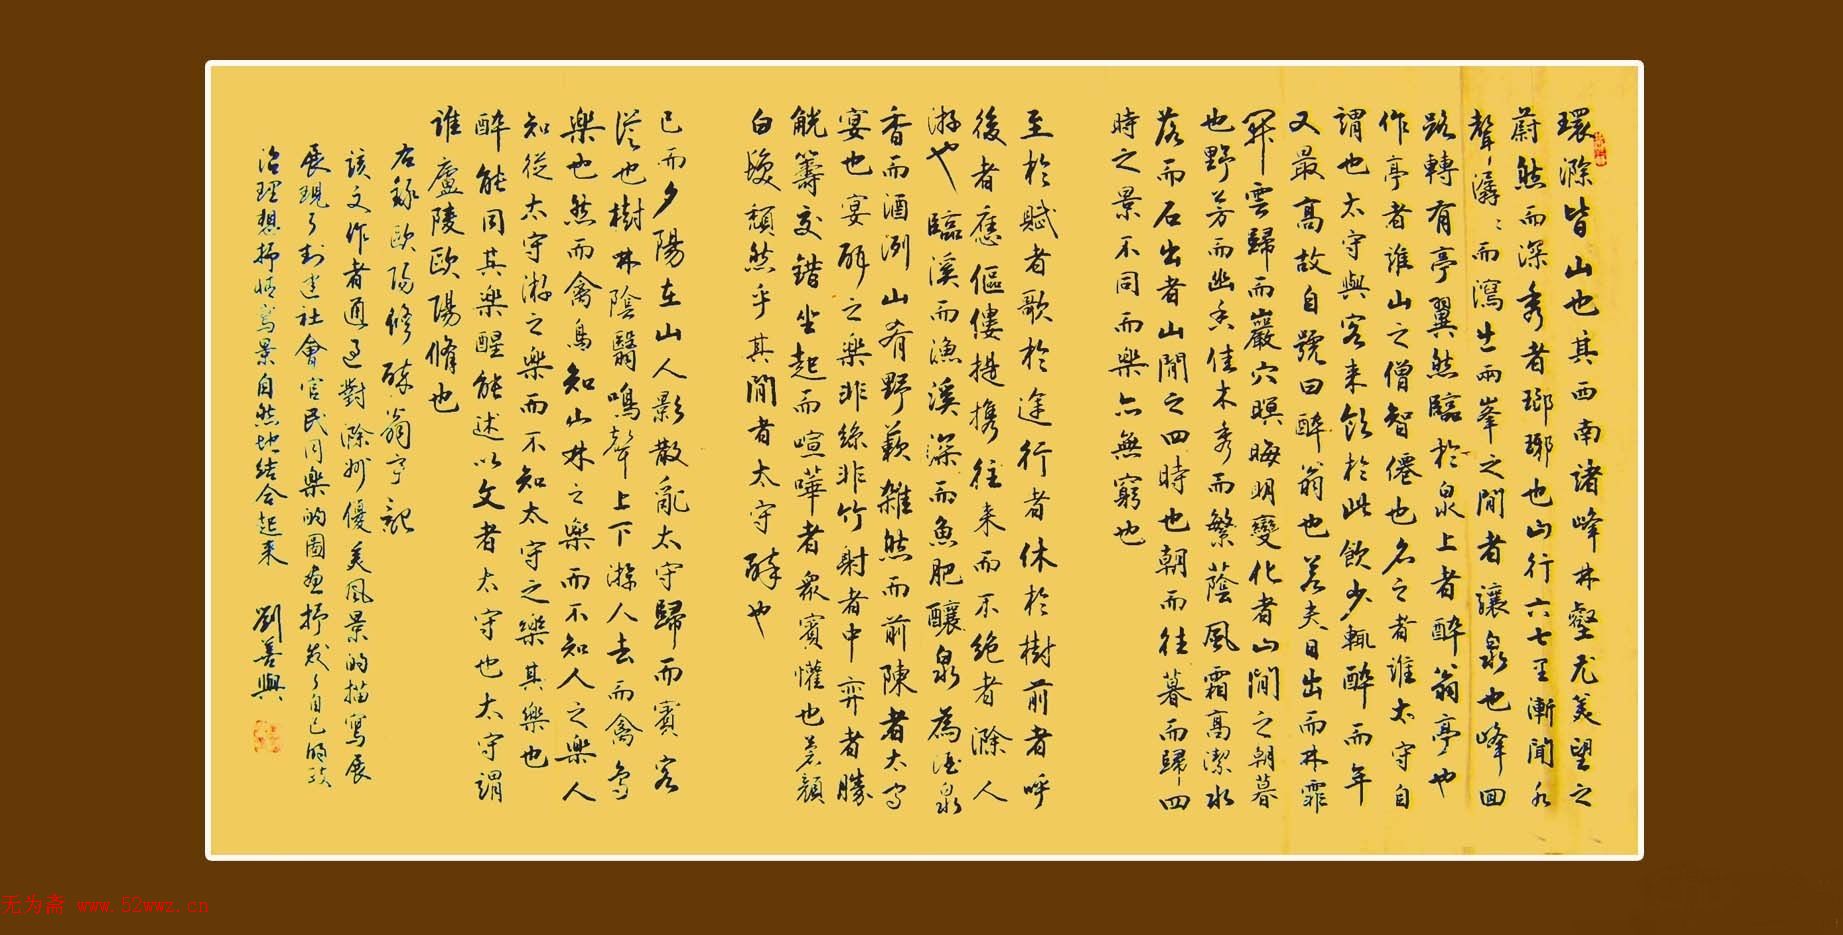 環滁皆山也其西南諸峰林壑尤美望之
蔚然而深秀者瑯琊也山行六七里漸聞水
聲潺〻而瀉出兩峯之間者讓泉也峰回
路轉有亭翼然臨於泉上者醉翁亭也
作亭者誰山之僧智僊也名之者誰太守自
謂也太守與客來飲於此飲少輒醉而年
又最高故自號曰醉翁也若夫日出而林霏
開雲歸而巖穴暝晦明變化者山間之朝暮
也野芳而幽香佳木秀而繁蔭風霜高潔水
落而石出者山間之四時也朝而往暮而歸四
時之景不同而樂亦無窮也
至於賦者歌於途行者休於樹前者呼
後者應傴僂提攜往來而不絕者滁人
游也臨溪而漁溪深而魚肥釀泉為酒泉
香而酒洌山肴野蔌雜然而前陳者太守
宴也宴酣之樂非絲非竹射者中弈者勝
觥籌交錯坐起而喧嘩者眾賓懽也蒼顏
白髮頹然乎其間者太守醉也
已而夕陽在山人影散亂太守歸而賓客
從也樹林陰翳鳴聲上下游人去而禽鳥
樂也然而禽鳥知山林之樂而不知人之樂人
知從太守游之樂而不知太守之樂其樂也
醉能同其樂醒能述以文者太守也太守謂
誰廬陵歐陽脩也
右錄歐陽修醉翁亭記
該文作者通過對滁州優美風景的描寫展
展現了封建社會官民同樂的圖畫抒發了自己的政
治理想抒情寫景自然地結合起來
劉善興
无为斋 www.52wwz.cn